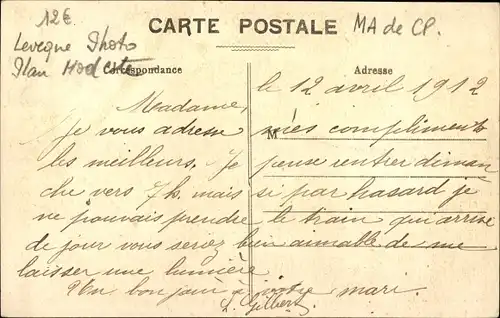 12€
CARTE POSTALE
MA de CP.
Leveque Photo
Ilan Modeste
Correspondance
Adresse
le 12 avril 1912
Madame,
Je vous adresse mes compliments
les meilleurs. Je pense rentrer diman
che vers 7h. mais si par hasard je
ne pouvais prendre le train qui arrive
de jour vous seriez bien aimable de me
laisser une lumière
Un bonjour à votre mari.
L. Gilbert
M